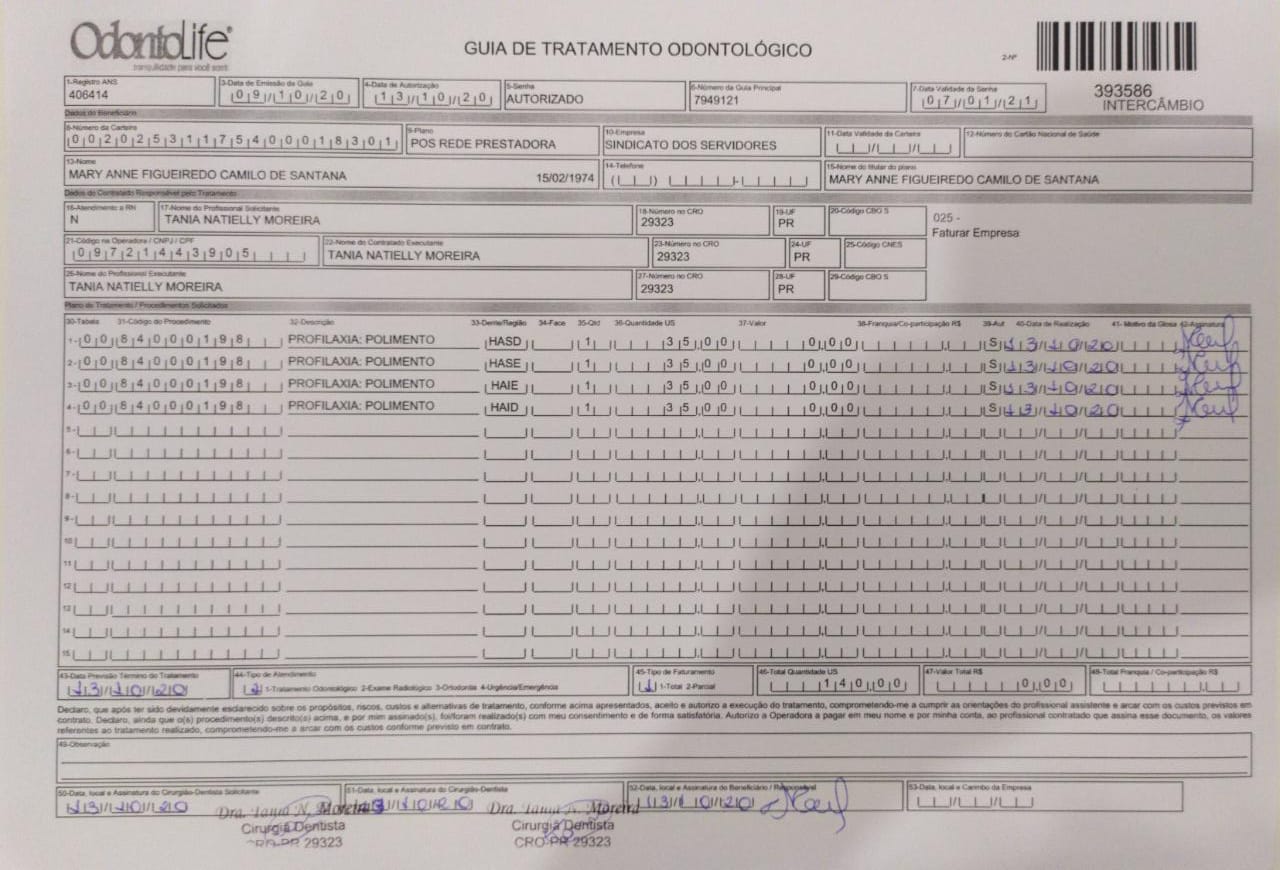 OdontoLife®
tranquilidade para você sorrir
GUIA DE TRATAMENTO ODONTOLÓGICO
2-Nº
393586
INTERCÂMBIO
1-Registro ANS
406414
3-Data de Emissão da Guia
09/10/20
4-Data de Autorização
13/10/20
5-Senha
AUTORIZADO
6-Número da Guia Principal
7949121
7-Data Validade da Senha
07/01/21
Dados do Beneficiário
8-Número da Carteira
00202531175400018301
9-Plano
POS REDE PRESTADORA
10-Empresa
SINDICATO DOS SERVIDORES
11-Data Validade da Carteira
12-Número do Cartão Nacional de Saúde
13-Nome
MARY ANNE FIGUEIREDO CAMILO DE SANTANA 15/02/1974
14-Telefone
15-Nome do titular do plano
MARY ANNE FIGUEIREDO CAMILO DE SANTANA
Dados do Contratado Responsável pelo Tratamento
16-Atendimento a RN
N
17-Nome do Profissional Solicitante
TANIA NATIELLY MOREIRA
18-Número no CRO
29323
19-UF
PR
20-Código CBO S
025 -
Faturar Empresa
21-Código na Operadora / CNPJ / CPF
09721443905
22-Nome do Contratado Executante
TANIA NATIELLY MOREIRA
23-Número no CRO
29323
24-UF
PR
25-Código CNES
26-Nome do Profissional Executante
TANIA NATIELLY MOREIRA
27-Número no CRO
29323
28-UF
PR
29-Código CBO S
Plano de Tratamento / Procedimentos Solicitados
30-Tabela 31-Código do Procedimento 32-Descrição 33-Dente/Região 34-Face 35-Qtd 36-Quantidade US 37-Valor 38-Franquia/Co-participação R$ 39-Aut 40-Data de Realização 41- Motivo da Glosa 42-Assinatura
1- 00 84000198 PROFILAXIA: POLIMENTO HASD 1 35,00 0,00 S 13/10/20
2- 00 84000198 PROFILAXIA: POLIMENTO HASE 1 35,00 0,00 S 13/10/20
3- 00 84000198 PROFILAXIA: POLIMENTO HAIE 1 35,00 0,00 S 13/10/20
4- 00 84000198 PROFILAXIA: POLIMENTO HAID 1 35,00 0,00 S 13/10/20
5-
6-
7-
8-
9-
10-
11-
12-
13-
14-
15-
43-Data Previsão Término do Tratamento
13/10/20
44-Tipo de Atendimento
1 1-Tratamento Odontológico 2-Exame Radiológico 3-Ortodontia 4-Urgência/Emergência
45-Tipo de Faturamento
1 1-Total 2-Parcial
46-Total Quantidade US
140,00
47-Valor Total R$
0,00
48-Total Franquia / Co-participação R$
Declaro, que após ter sido devidamente esclarecido sobre os propósitos, riscos, custos e alternativas de tratamento, conforme acima apresentados, aceito e autorizo a execução do tratamento, comprometendo-me a cumprir as orientações do profissional assistente e arcar com os custos previstos em
contrato. Declaro, ainda que o(s) procedimento(s) descrito(s) acima, e por mim assinado(s), foi/foram realizado(s) com meu consentimento e de forma satisfatória. Autorizo a Operadora a pagar em meu nome e por minha conta, ao profissional contratado que assina esse documento, os valores
referentes ao tratamento realizado, comprometendo-me a arcar com os custos conforme previsto em contrato.
49-Observação
50-Data, local e Assinatura do Cirurgião-Dentista Solicitante
13/10/20
Dra. Tania N. Moreira
Cirurgiã Dentista
CRO-PR 29323
51-Data, local e Assinatura do Cirurgião-Dentista
13/10/20
Dra. Tania N. Moreira
Cirurgiã Dentista
CRO-PR 29323
52-Data, local e Assinatura do Beneficiário / Responsável
13/10/20
53-Data, local e Carimbo da Empresa